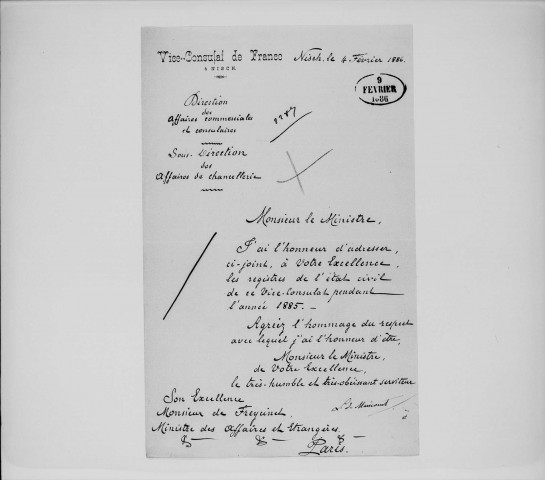 Vice-Consulat de France
à Nisch.
Nisch, le 4 Février 1886.
9
FEVRIER
1886
Direction
des
Affaires commerciales
et consulaires
Sous-Direction
des
Affaires de chancellerie
Monsieur le Ministre,
J'ai l'honneur d'adresser,
ci-joint, à Votre Excellence,
les registres de l'état civil
de ce Vice-Consulat pendant
l'année 1885.-
Agréez l'hommage du respect
avec lequel j'ai l'honneur d'être,
Monsieur le Ministre,
de Votre Excellence,
le très-humble et très-obéissant serviteur
Son Excellence
Monsieur de Freycinet
Ministre des Affaires et Etrangères.
& & &
Paris.